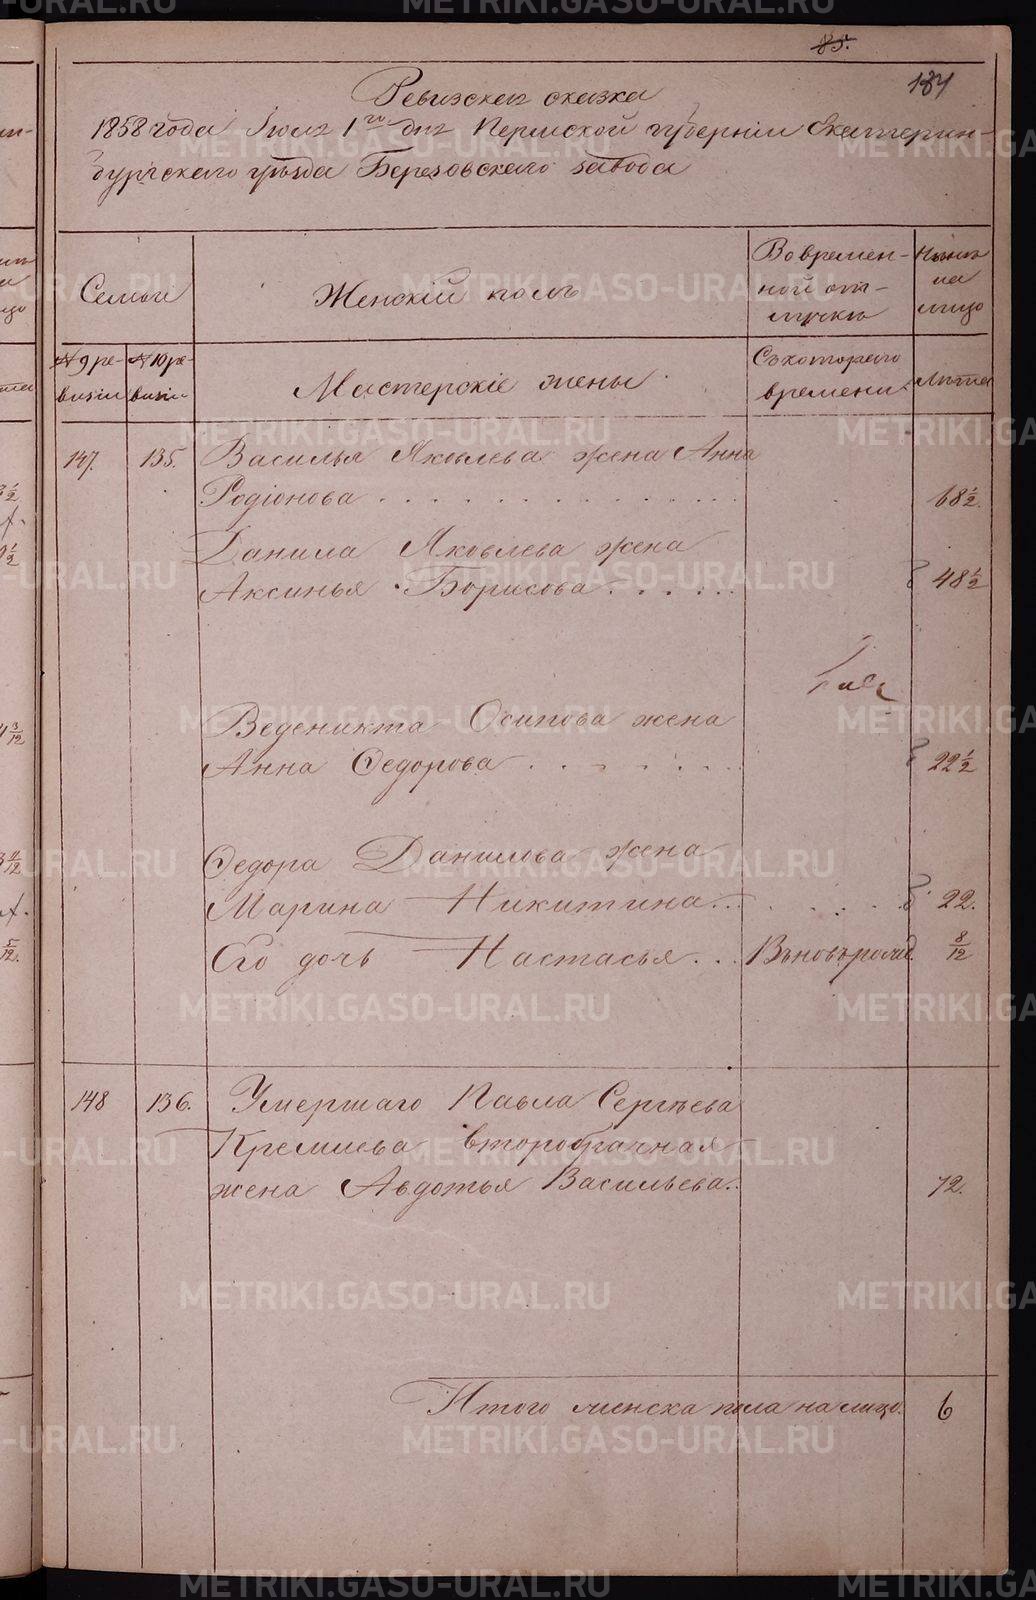 85.
184
Ревизская сказка
1858 года Июля 1го дня Пермской губернии Екатерин-
бургского уѣзда Березовскаго завода
Семьи
Женскій полъ
Во времен-
ной от-
лучкѣ
Нынѣ
на
лицо
№ 9 ре-
визіи
№ 10 ре-
визіи
Мастерскіе жены
Съ котораго
времени
Лѣта
147. 135. Василья Яковлева жена Анна
Родіонова . . . . . . 68 1/2
Данила Яковлева жена
Аксинья Борисова . . . . . . 48 1/2
Веденикта Осипова жена
Анна Федорова . . . . . . 22 1/2
Федора Данилова жена
Марина Никитина . . . . . . 22.
Его дочь Настасья . . . Вновьрожд. 8/12
148 136. Умершаго Павла Сергѣева
Кремлева второбрачная
жена Авдотья Васильева . . 72.
Итого женска пола на лицо. 6
METRIKI.GASO-URAL.RU